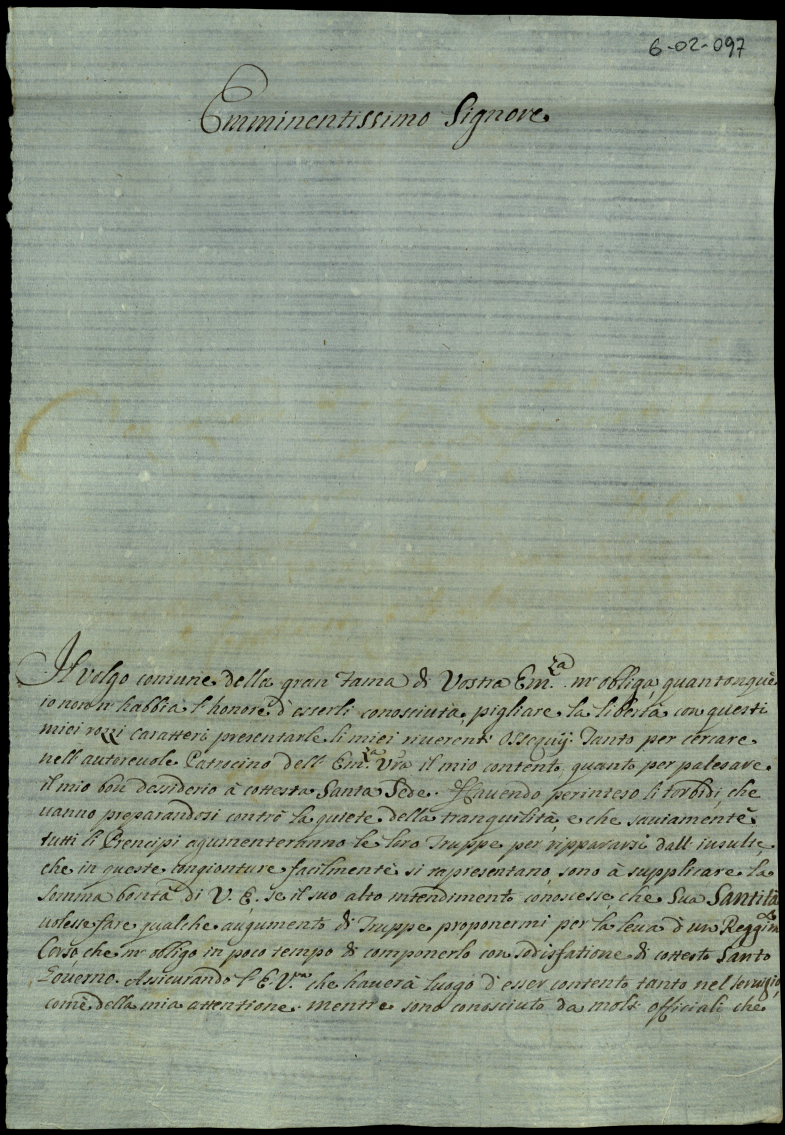 6-02-097
Emminentissimo Signore
Il volgo comune della gran fama di Vostra Em.za m'obliga quantonque
io non n'habbia l'honore d'esserli conosciuta, pigliare la libertà con questi
miei rozzi caratteri presentarle li miei riuerenti Ossequij. Tanto per cercare
nell'autoreuole Patrocino dell'Em.za Vra il mio contento, quanto per palesare
il mio bon desiderio à cottesta Santa Sede. Hauendo perinteso li torbidi, che
uanno preparandosi contrò la quiete della tranquilità, e che sauiamente
tutti li Prencipi agumenteranno le loro Truppe per ripparasi dall'insulte
che in queste congionture facilmente si rapresentano, sono à supplicare la
somma bontà di V. E. se il suo alto intendimento conoscesse che Sua Santità
uolesse fare qualche augumento di Truppe proponermi per la leua d'un Reggim.to
Corso, che m'obligo in poco tempo di componerlo con sodisfatione di cottesto Santo
Gouerno. Assicurando l'E. V.ra che hauerà luogo d'esser contento tanto nel seruigio,
come della mia attentione. mentre sono conosciuto da molti officiali che